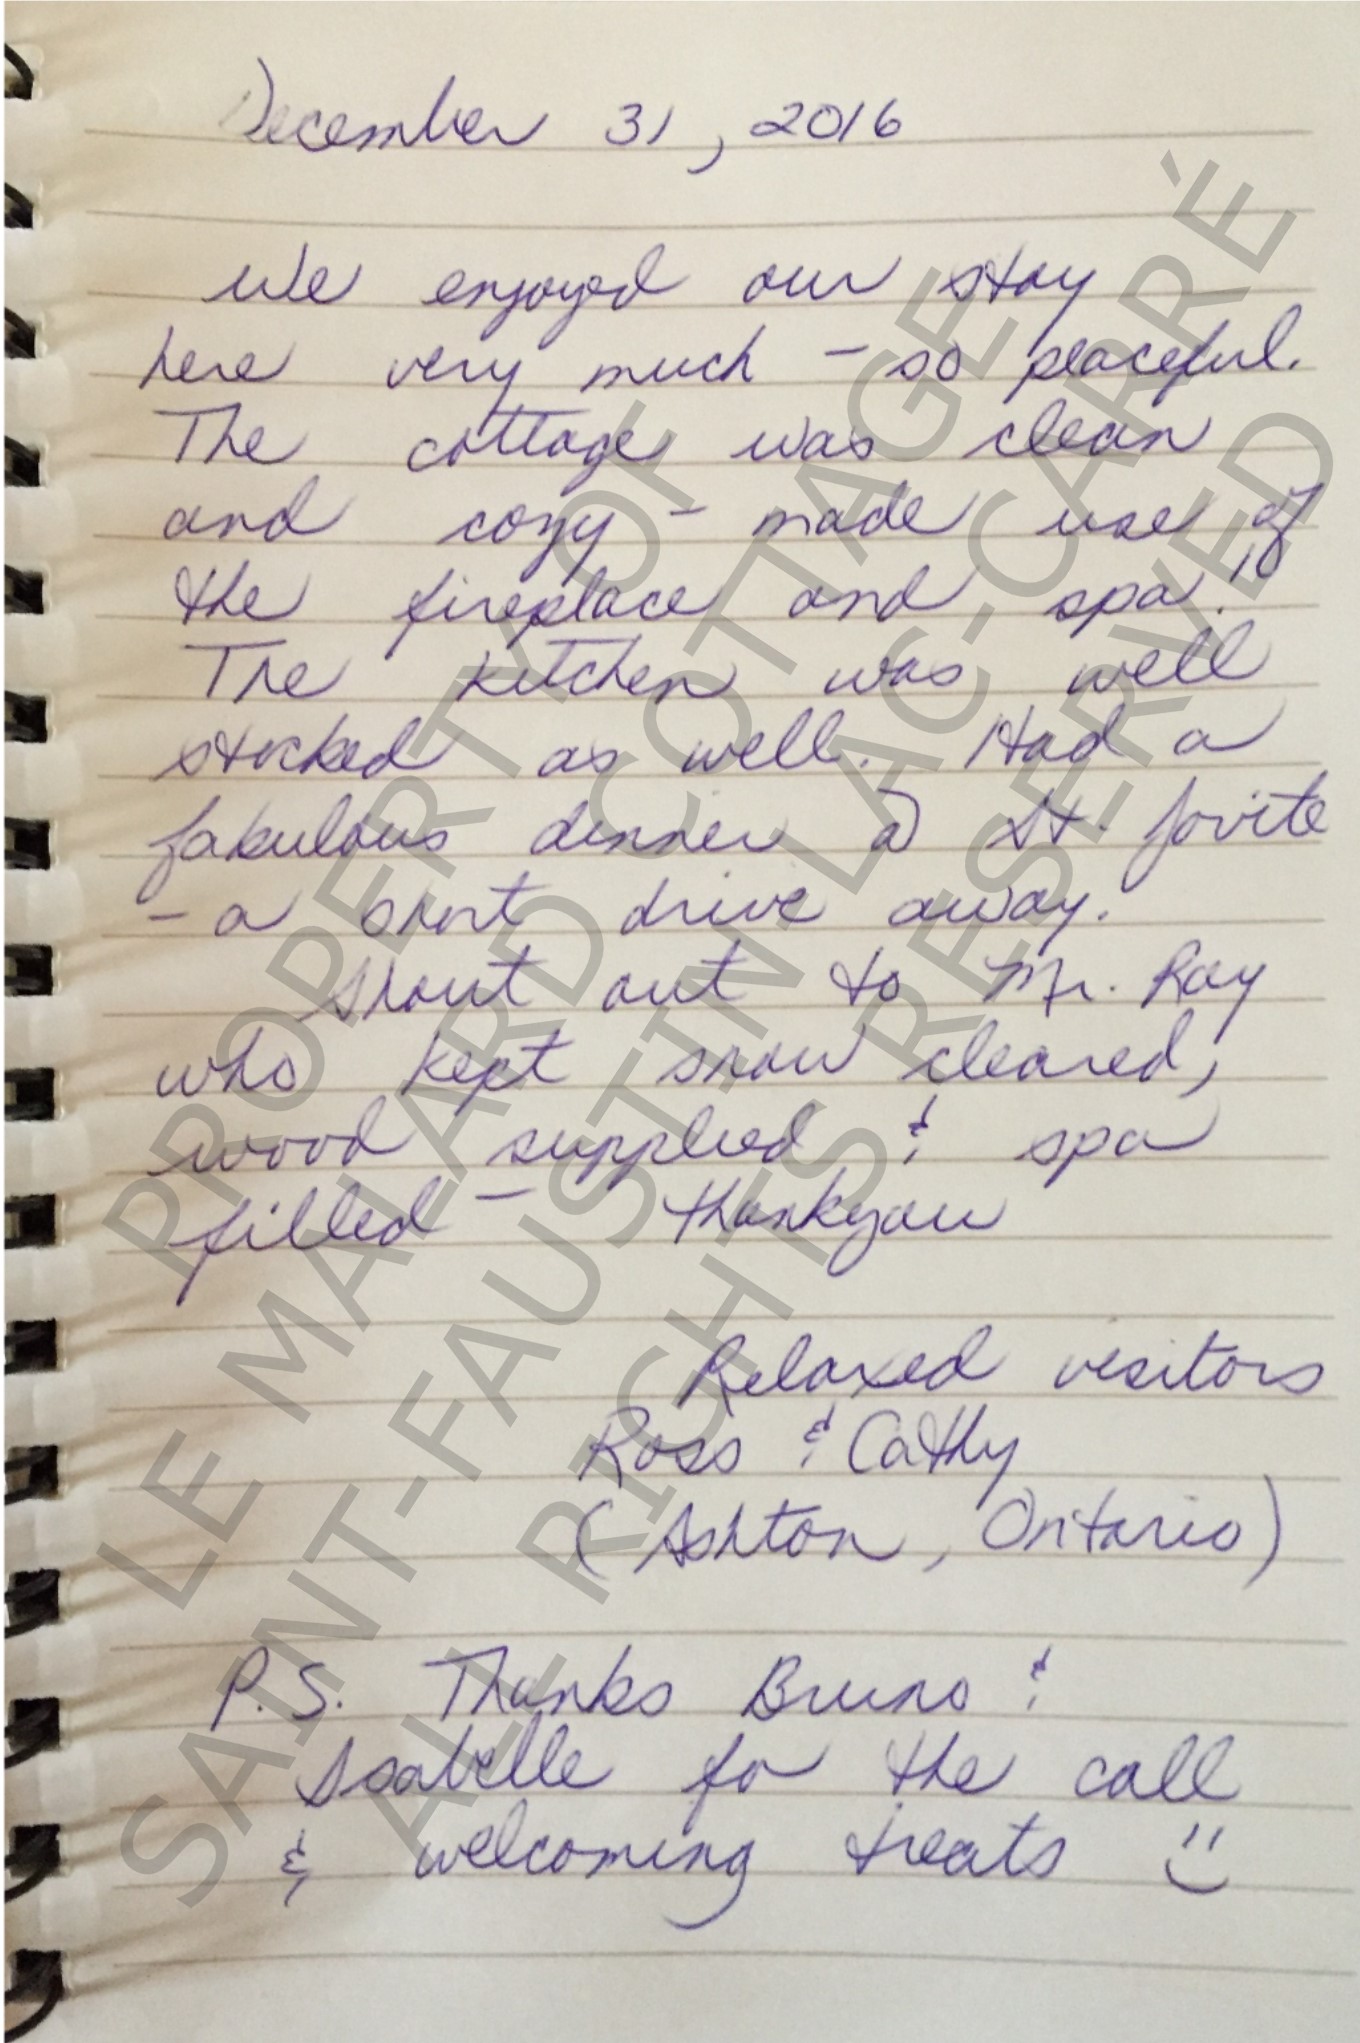 December 31, 2016
We enjoyed our stay
here very much - so peaceful.
The cottage was clean
and cozy - made use of
the fireplace and spa!
The kitchen was well
stocked as well. Had a
fabulous dinner @ St. Jovite
- a short drive away.
Shout out to Mr. Ray
who kept snow cleared,
wood supplied & spa
filled - thankyou
Relaxed visitors
Ross & Cathy
(Ashton, Ontario)
P.S. Thanks Bruno &
Isabelle for the call
& welcoming treats
PROPERTY OF
LE MALARD COTTAGE
SAINT-FAUSTIN-LAC-CARRÉ
ALL RIGHTS RESERVED